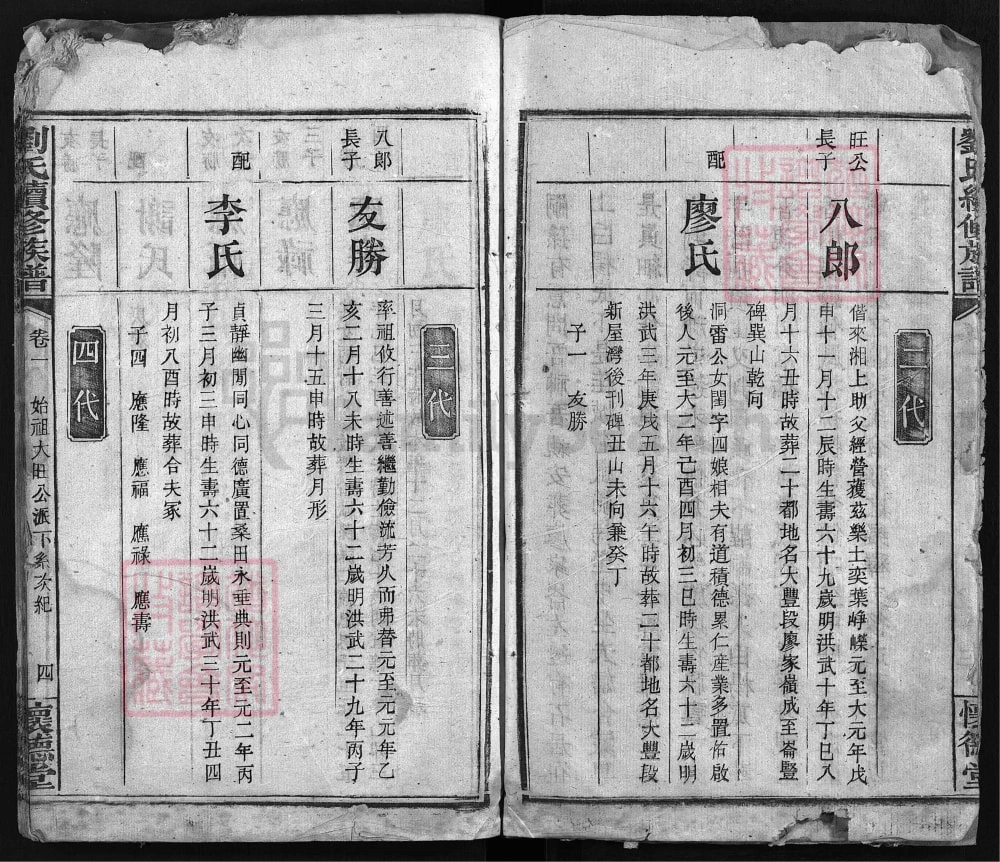 劉氏續修族譜
二代
旺公
長子
八郎
偕來湘上助父經營獲茲樂土奕葉崢嶸元至大元年戊
申十一月十二辰時生壽六十九歲明洪武十年丁巳八
月十六丑時故葬二十都地名大豐段廖家嶺成至崙豎
碑巽山乾向
配
廖氏
洞雷公女閨字四娘相夫有道積德累仁産業多置佑啟
後人元至大二年己酉四月初三巳時生壽六十二歲明
洪武三年庚戌五月十六午時故葬二十都地名大豐段
新屋灣後刊碑丑山未向兼癸丁
子一 友勝
懷德堂
三代
八郎
長子
友勝
率祖攸行善述善繼勤儉流芳久而弗替元至元元年乙
亥二月十八未時生壽六十二歲明洪武二十九年丙子
三月十五申時故葬月形
配
李氏
貞靜幽閒同心同德廣置桑田永垂典則元至元二年丙
子三月初三申時生壽六十二歲明洪武三十年丁丑四
月初八酉時故葬合夫冢
子四 應隆 應福 應祿 應壽
四代
劉氏續修族譜
卷一
始祖大旺公派下系次紀
四
懷德堂